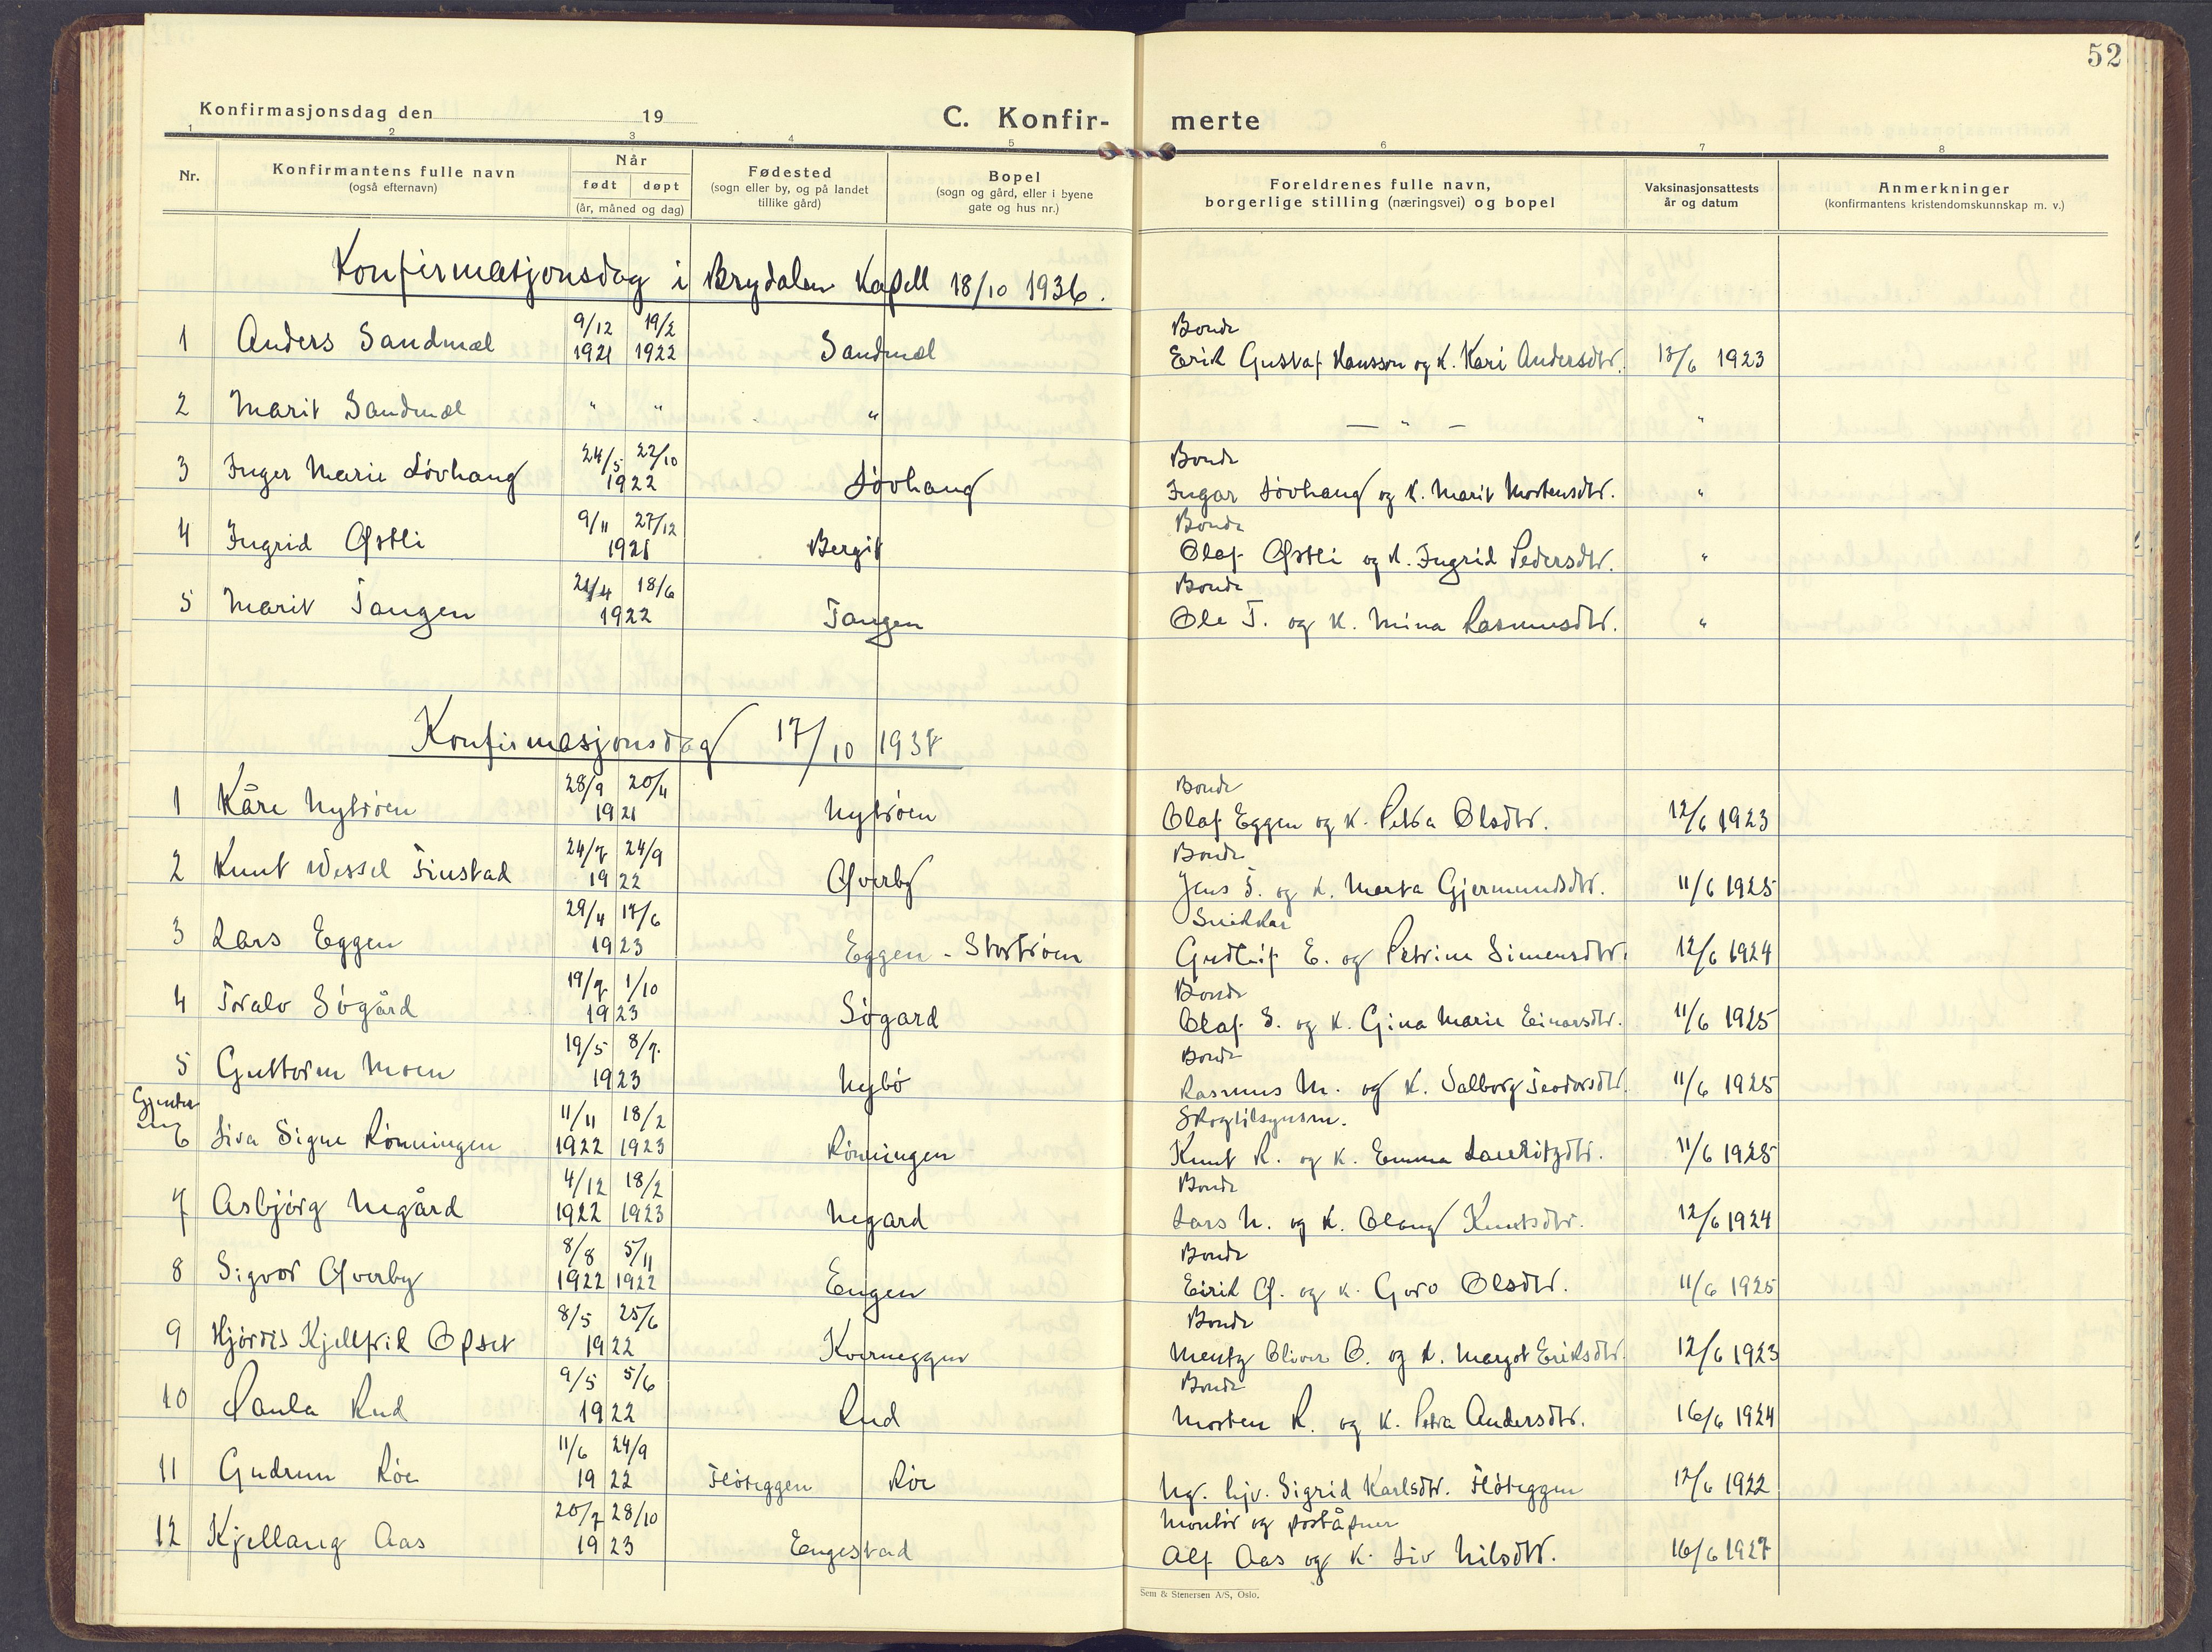 52
Konfirmasjonsdag den 19
C. Konfir- merte
1 2 3 4 5 6 7 8
Nr.
Konfirmantens fulle navn
(også efternavn)
Når
født døpt
(år, måned og dag)
Fødested
(sogn eller by, og på landet
tillike gård)
Bopel
(sogn og gård, eller i byene
gate og hus nr.)
Foreldrenes fulle navn,
borgerlige stilling (næringsvei) og bopel
Vaksinasjonsattests
år og datum
Anmerkninger
(konfirmantens kristendomskunnskap m. v.)
Konfirmasjonsdag i Brydalen Kapell 18/10 1936.
9/12 19/2 Bonde
1 Anders Sandmæl 1921 1922 Sandmæl Erik Gustaf Hansson og k. Kari Andersdtr. 13/6 1923
2 Marit Sandmæl " " " — " — "
24/5 22/10 Bonde
3 Inger Marie Løvhaug 1922 Løvhaug Ingar Løvhaug og k. Marit Mortensdtr. "
9/11 27/12 Bonde
4 Ingrid Østli 1921 Bergit Olaf Østli og k. Ingrid Pedersdtr. "
21/4 18/6 Bonde
5 Marit Tangen 1922 Tangen Ole T. og k. Mina Rasmusdtr. "
Konfirmasjonsdag 17/10 1937
28/9 20/11 Bonde
1 Kåre Nytrøen 1921 Nytrøen Olaf Eggen og k. Petra Olsdtr. 12/6 1923
24/7 24/9 Bonde
2 Knut Wessel Finstad 1922 Øverby Jens F. og k. Marta Gjermundsdtr. 11/6 1925
29/4 17/6 Snekker
3 Lars Eggen 1923 Eggen - Stortrøen Gudleif E. og Petrine Simensdtr. 12/6 1924
19/7 1/10 Bonde
4 Toralv Søgård 1923 Søgard Olaf S. og k. Gina Marie Einarsdtr. 11/6 1925
19/5 8/7. Bonde
5 Guttorm Moen 1923 Nybø Rasmus M. og k. Valborg Teodorsdtr. 11/6 1925
11/11 18/2 Skogtilsynsm.
6 Liva Signe Rønningen 1922 1923 Rønningen Knut R. og k. Emma Lauritzdtr. 11/6 1925
4/12 18/2 Bonde
7 Asbjørg Negård 1922 1923 Negard Lars N. og k. Olaug Knutsdtr. 12/6 1924
8/8 5/11 Bonde
8 Sigvor Øverby 1922 1922 Engen Eirik Ø. og k. Guro Olsdtr. 11/6 1925
8/5 25/6 Bonde
9 Hjørdis Kjellfrid Opset 1922 Kverneggen Mentz Oliver O. og k. Margot Eriksdtr. 12/6 1923
9/5 5/6 Bonde
10 Paula Rud 1922 Rud Morten R. og k. Petra Andersdtr. 16/6 1924
11/6 24/9
11 Gudrun Røe 1922 Fløteggen Røe Ug. hjv. Sigrid Karlsdtr. Fløteggen 12/6 1922
20/7 28/10 Montør og poståpner
12 Kjellaug Aas 1923 Engestad Alf Aas og k. Liv Nilsdtr. 16/6 1927
Sem & Stenersen A/S, Oslo.